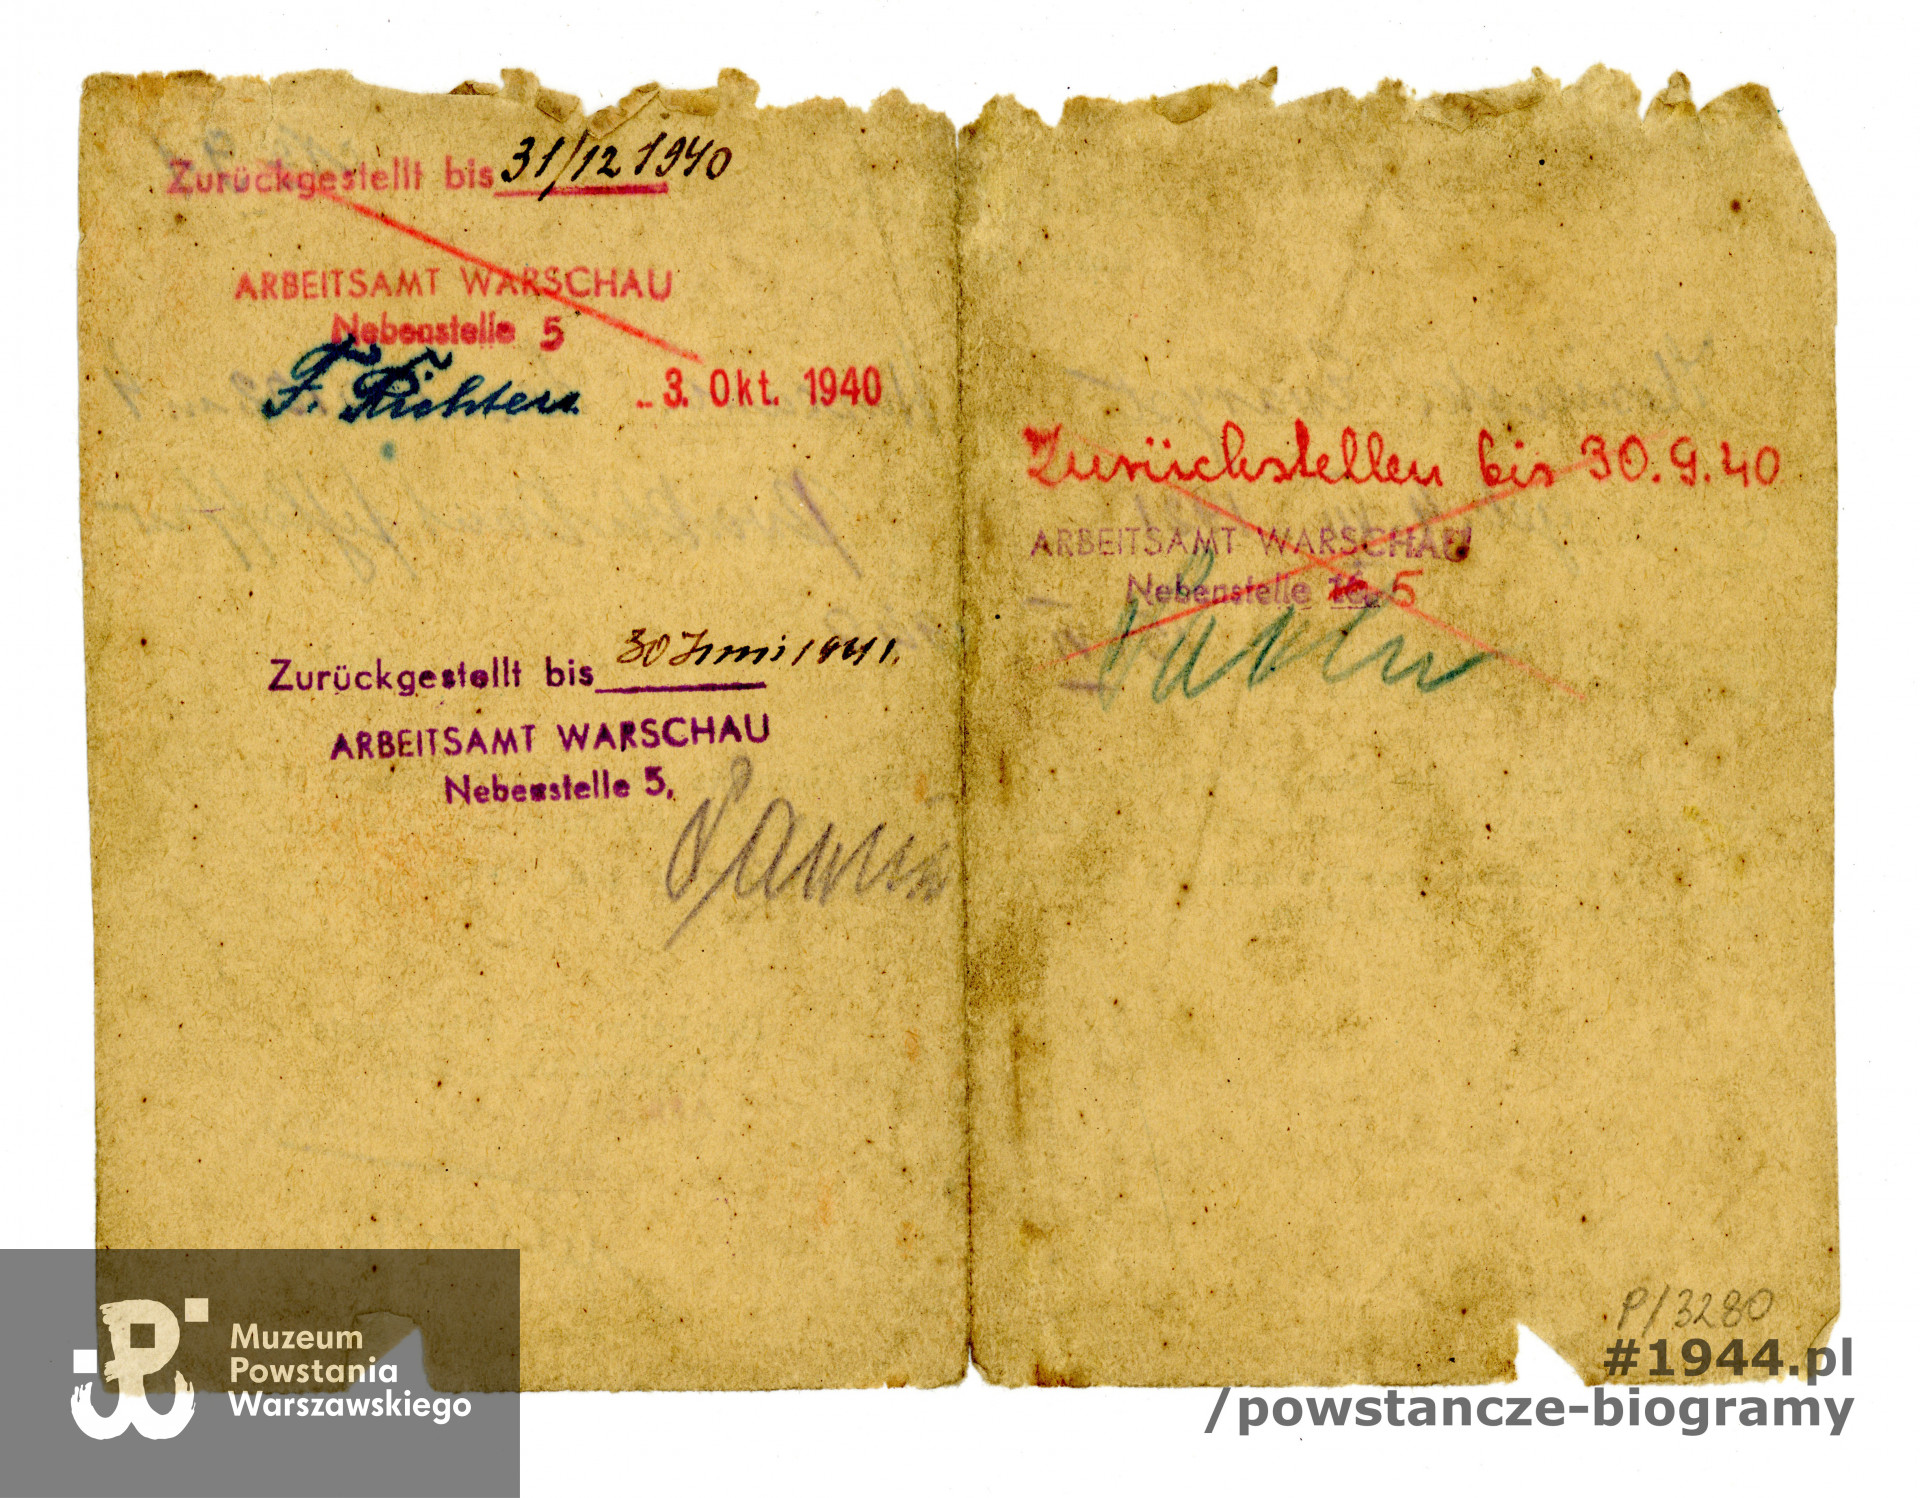 Zurückgestellt bis 31/12 1940
ARBEITSAMT WARSCHAU
Nebenstelle 5
F. Richter
3. Okt. 1940
Zurückgestellt bis 30 Juni 1941.
ARBEITSAMT WARSCHAU
Nebenstelle 5.
Zurückstellen bis 30.9.40
ARBEITSAMT WARSCHAU
Nebenstelle 5
P/3280
Muzeum
Powstania
Warszawskiego
#1944.pl
/powstancze-biogramy